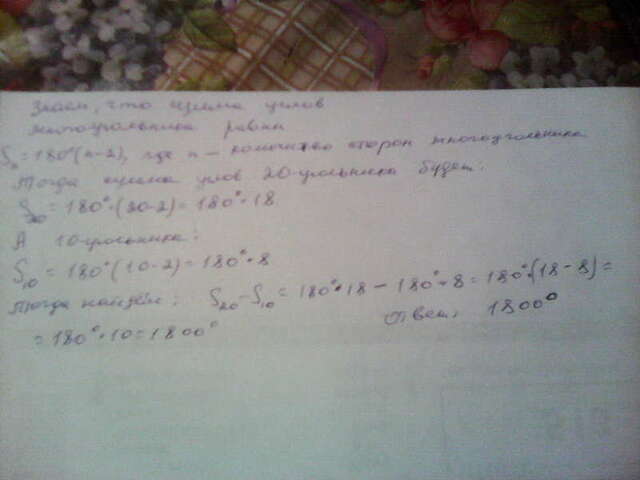 Знаем, что сумма углов
многоугольника равна
Sₙ = 180°(n-2), где n - количество сторон многоугольника
Тогда сумма углов 20-угольника будет:
S₂₀ = 180°·(20-2) = 180°·18
А 10-угольника:
S₁₀ = 180°(10-2) = 180°·8
Тогда найдём: S₂₀-S₁₀ = 180°·18 - 180°·8 = 180°·(18-8) =
= 180°·10 = 1800° Ответ: 1800°